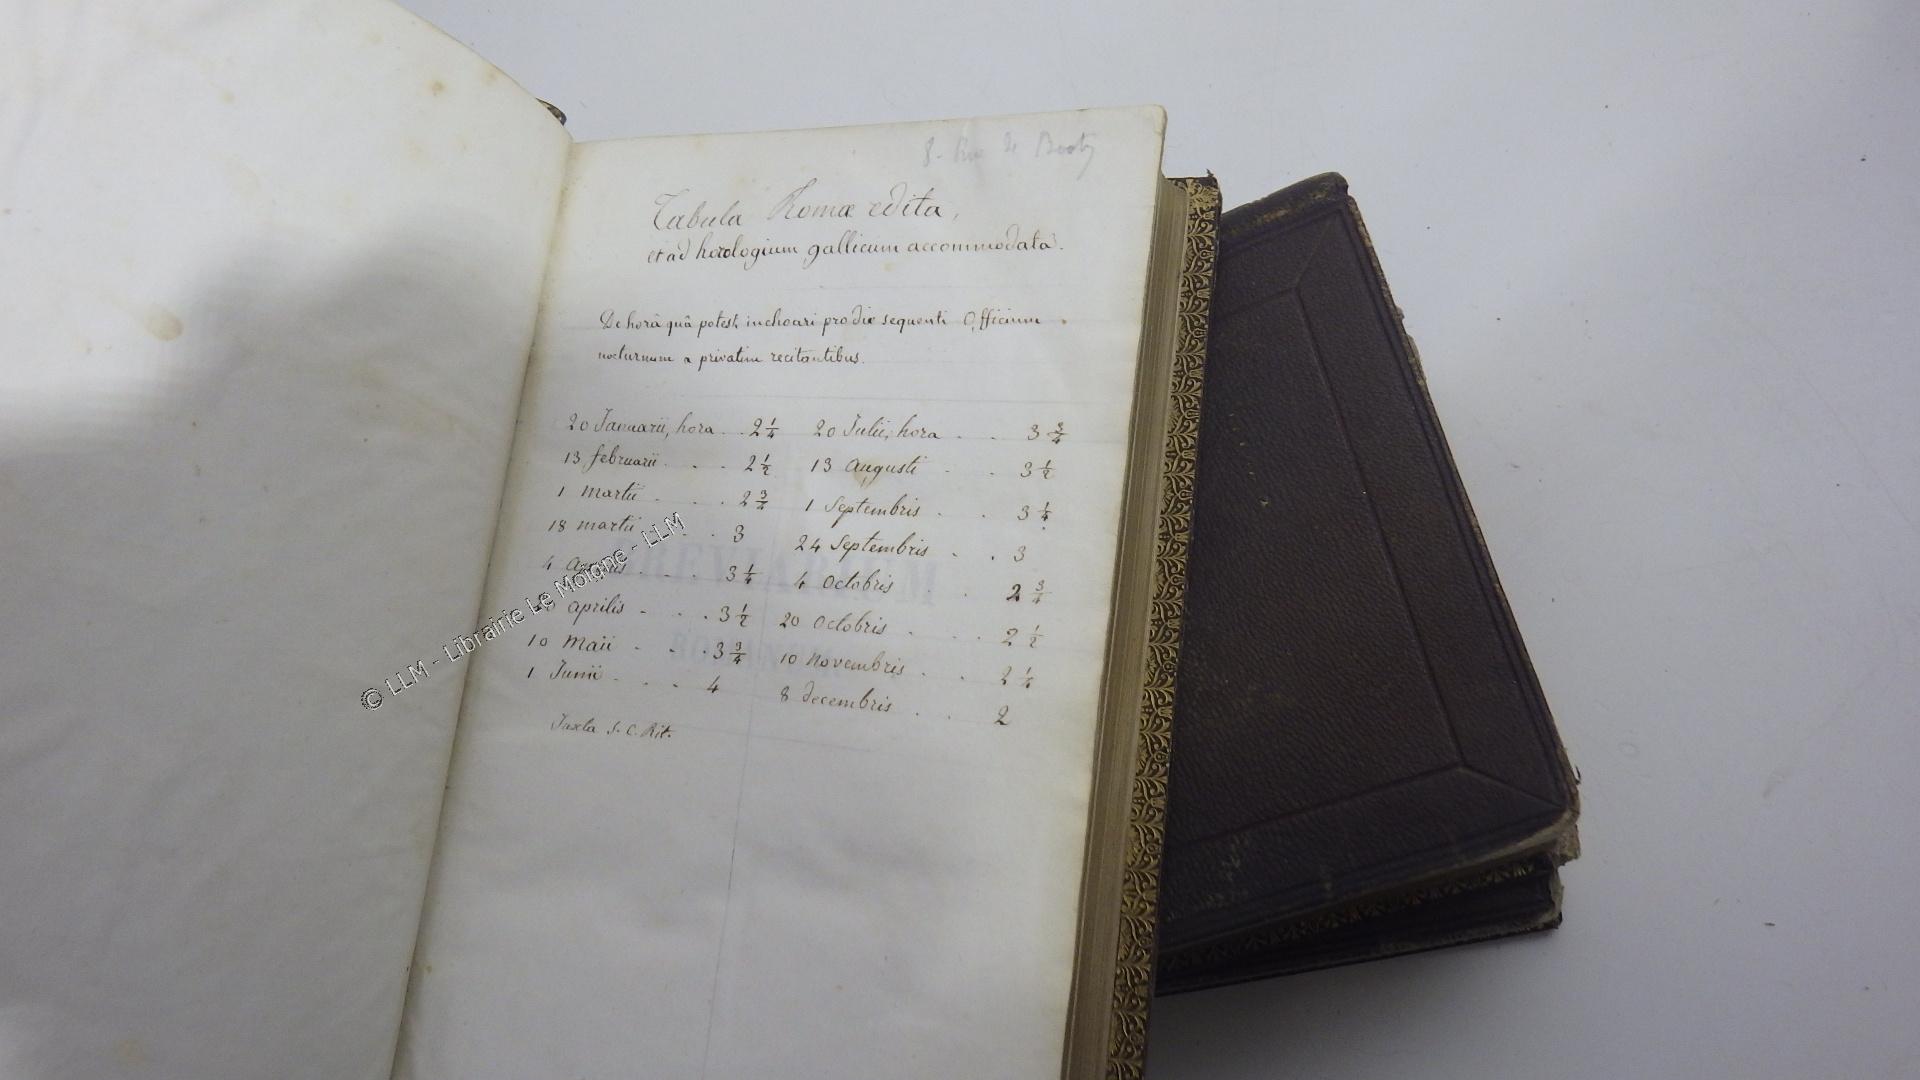 8. Rue de
Tabula Romæ edita,
et ad horologium gallicum accommodata.
De horâ quâ potest inchoari pro die sequenti Officium
nocturnum a privatim recitantibus.
20 Januarii, hora . . 2 1/4 20 Julii, hora . . 3 3/4
13 februarii . . . 2 1/2 13 augusti . . 3 1/2
1 martii . . . 2 3/4 1 Septembris . . 3 1/4
18 martii . . 3 24 Septembris . . 3
4 . . . 3 1/4 4 Octobris . . 2 3/4
aprilis . . . 3 1/2 20 Octobris . . . 2 1/2
10 Maii . . . 3 3/4 10 Novembris . . 2 1/4
1 Junii . . . 4 8 decembris . . 2
Juxta S. C. Rit.
BREVIARIUM
© LLM - Librairie Le Moigne - LLM